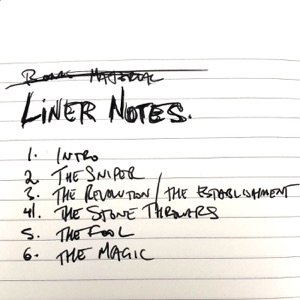 Bonus Material
Liner Notes.
1. Intro
2 The Sniper
3. The Revolution / The Establishment
4. The Stone Throwers
5. The Fool
6. The Magic